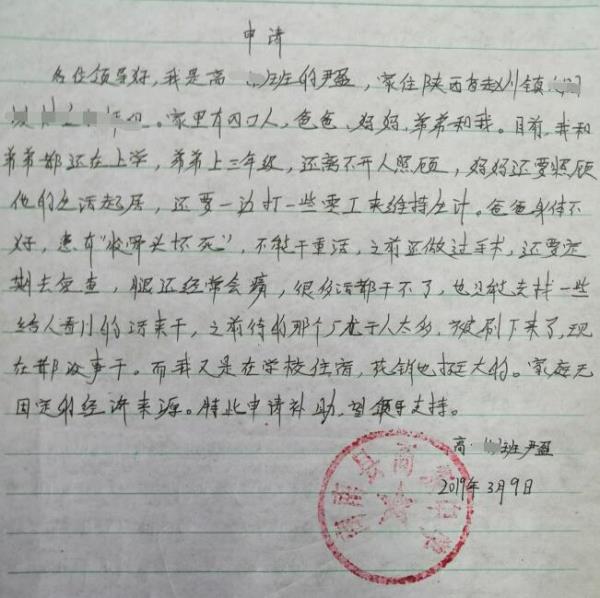 申请
各位领导好，我是高 班的尹盈，家住陕西省赵川镇
。家里有四口人，爸爸、妈妈、弟弟和我。目前，我和
弟弟都还在上学，弟弟上三年级，还离不开人照顾，妈妈还要照顾
他的生活起居，还要一边打一些零工来维持生计。爸爸身体不
好，患有“股骨头坏死”，不能干重活，之前还做过手术，还要定
期去复查，腿还经常会痛，很多活都干不了，也只能去找一些
给人看门的活来干，之前待的那个厂 于人太多，被刷下来了，现
在都没事干。而我又是在学校住宿，花销也挺大的。家庭无
固定的经济来源。特此申请补助，望领导支持。
高 班尹盈
2019年3月9日
县高 中学